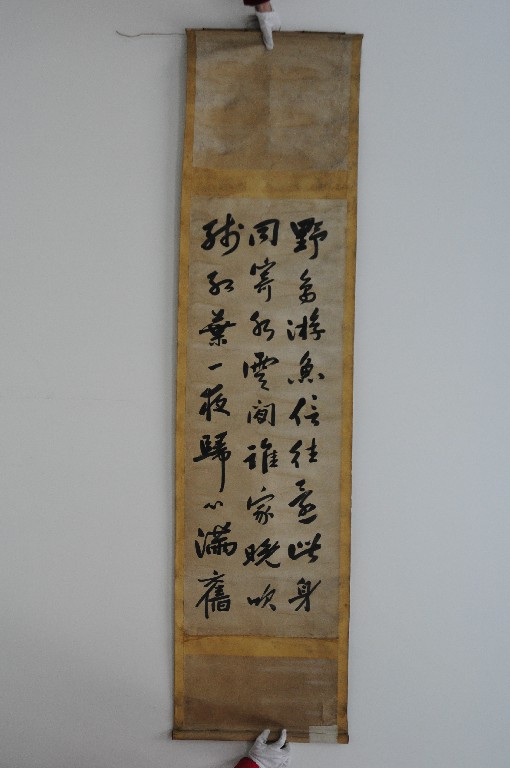 野鳥游魚信往還此身
同寄水雲間誰家晚吹
殘紅葉一夜歸心滿舊